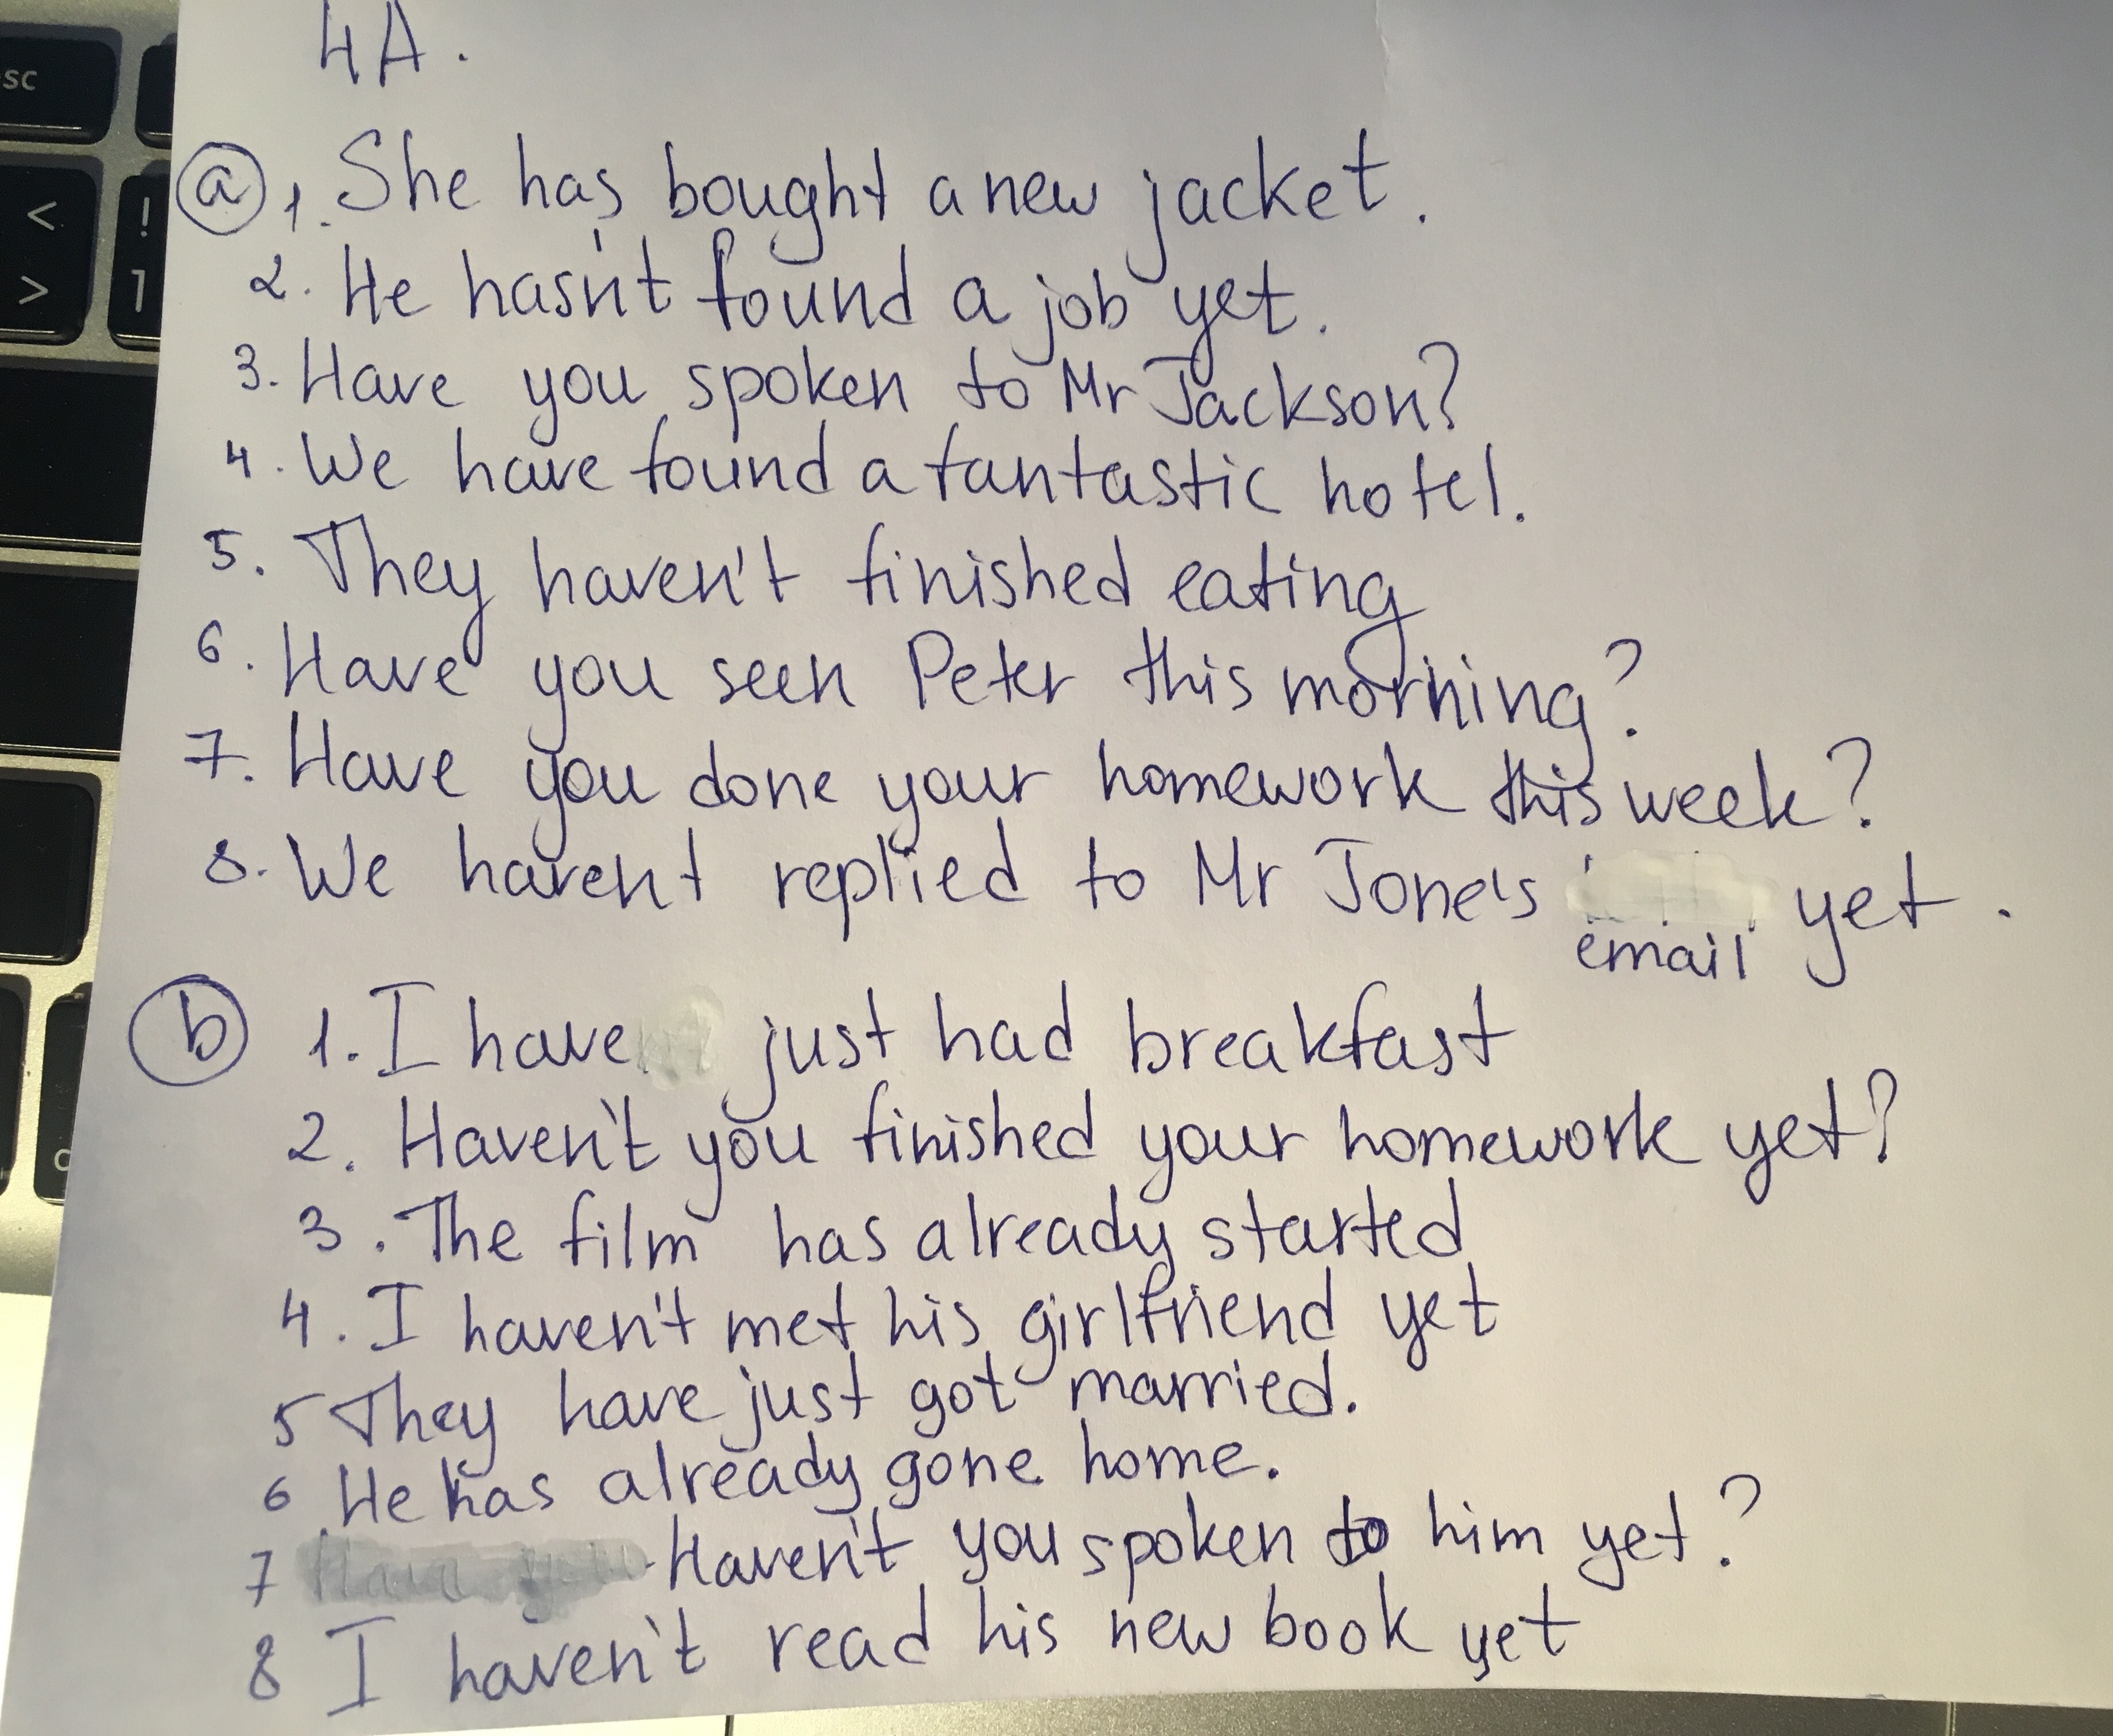 4A.
ⓐ 1. She has bought a new jacket.
2. He hasn't found a job yet.
3. Have you spoken to Mr Jackson?
4. We have found a fantastic hotel.
5. They haven't finished eating
6. Have you seen Peter this morning?
7. Have you done your homework this week?
8. We havent replied to Mr Jone's yet.
email
ⓑ 1. I have just had breakfast
2. Haven't you finished your homework yet?
3. The film has already started
4. I haven't met his girlfriend yet
5 They have just got married.
6. He has already gone home.
7 Haven't you spoken to him yet?
8 I haven't read his new book yet
sc
<
>
!
1